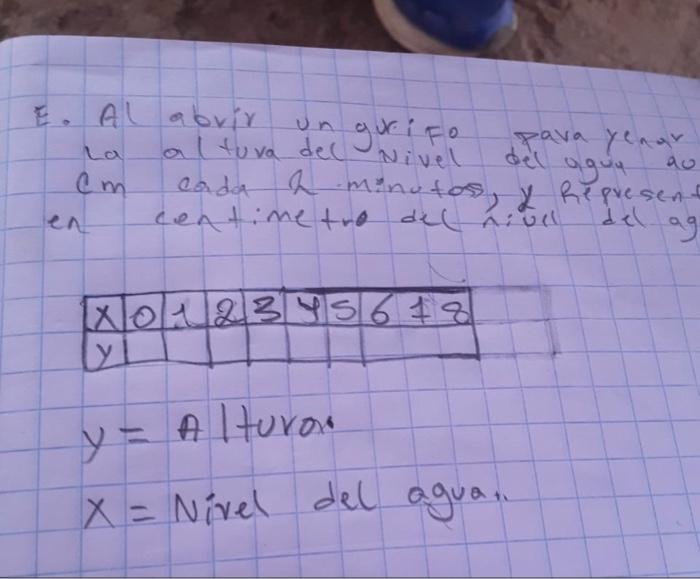 E. Al abrir un grifo para yenar
La altura del Nivel del agua
Cm cada 2 minutos, y Represent
en centimetro del nivel del ag
X 0 1 2 3 4 5 6 7 8
y
y = Altura.
X = Nivel del agua..